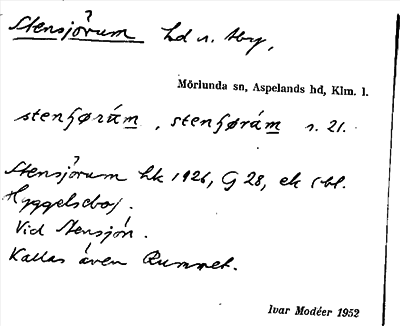 Stensjörum hd n. Åby,
Mörlunda sn, Aspelands hd, Klm. l.
stenʃørám, stenʃørám s. 21.
Stensjörum hk 1926, G 28, ek (bl.
Hyggelsbo).
Vid Stensjön.
Kallas även Rummet.
Ivar Modéer 1952